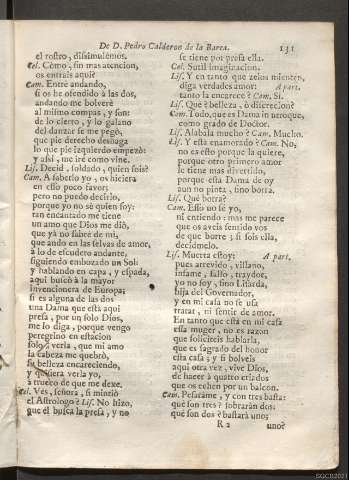 De D. Pedro Calderon de la Barca.
131
el rostro, dissimulemos.
Cel. Còmo, sin mas atencion,
os entrais aqui?
Cam. Entrè andando,
si os he ofendido à las dos,
andando me bolverè
al mismo compas, y son:
de lo cierto, y lo galano
del danzar se me pegò,
que pie derecho deshaga
lo que pie izquierdo empezò:
y assi, me irè como vine.
Lis. Decid, soldado, quien sois?
Cam. A saberlo yo, os hiciera
en esso poco favor;
pero no puedo decirlo,
porque yo no sè quien soy:
tan encantado me tiene
un amo que Dios me diò,
que yà no sabrè de mi,
que ando en las selvas de amor,
à lo de escudero andante,
siguiendo embozado un Sol:
y hablando en capa, y espada,
aqui buscò à la mayor
invencionera de Europa;
si es alguna de las dos
una Dama que està aqui
presa, por un solo Dios,
me lo diga, porque vengo
peregrino en estacion
solo à verla, que mi amo
la cabeza me quebrò,
su belleza encareciendo,
y quisiera verla yo,
à trueco de que me dexe.
Cel. Ves, señora, si mintiò
el Astrologo? Lis. No hizo,
que èl busca la presa, y no
se tiene por presa ella.
Cel. Sutil imaginacion.
Lis. Y en tanto que zelos mienten,
diga verdades amor: A part.
tanto la encarece? Cam. Si.
Lis. Què? belleza, ò discrecion?
Cam. Todo, que es Dama in utroque,
como grado de Doctor.
Lis. Alabala mucho? Cam. Mucho.
Lis. Y està enamorado? Cam. No;
no es esso porque la quiere,
porque otro primero amor
le tiene mas divertido,
porque esta Dama de oy
aun no pinta, sino borra.
Lis. Què borra?
Cam. Esso no sè yo,
ni entiendo: mas me parece
que os aveis sentido vos
de que borre; si sois ella,
decidmelo.
Lis. Muerta estoy: A part.
pues atrevido, villano,
infame, falso, traydor,
yo no soy, sino Lisarda,
hija del Governador,
y en mi casa no se usa
tratar, ni sentir de amor.
En tanto que està en mi casa
essa muger, no es razon
que soliciteis hablarla,
que es sagrado del honor
esta casa; y si bolveis
aqui otra vez, vive Dios,
de hacer à quatro criados
que os echen por un balcon.
Cam. Pesaràme, y con tres basta:
què son tres? sobraràn dos:
què son dos? bastarà uno:
R 2
uno?
SGCB2021